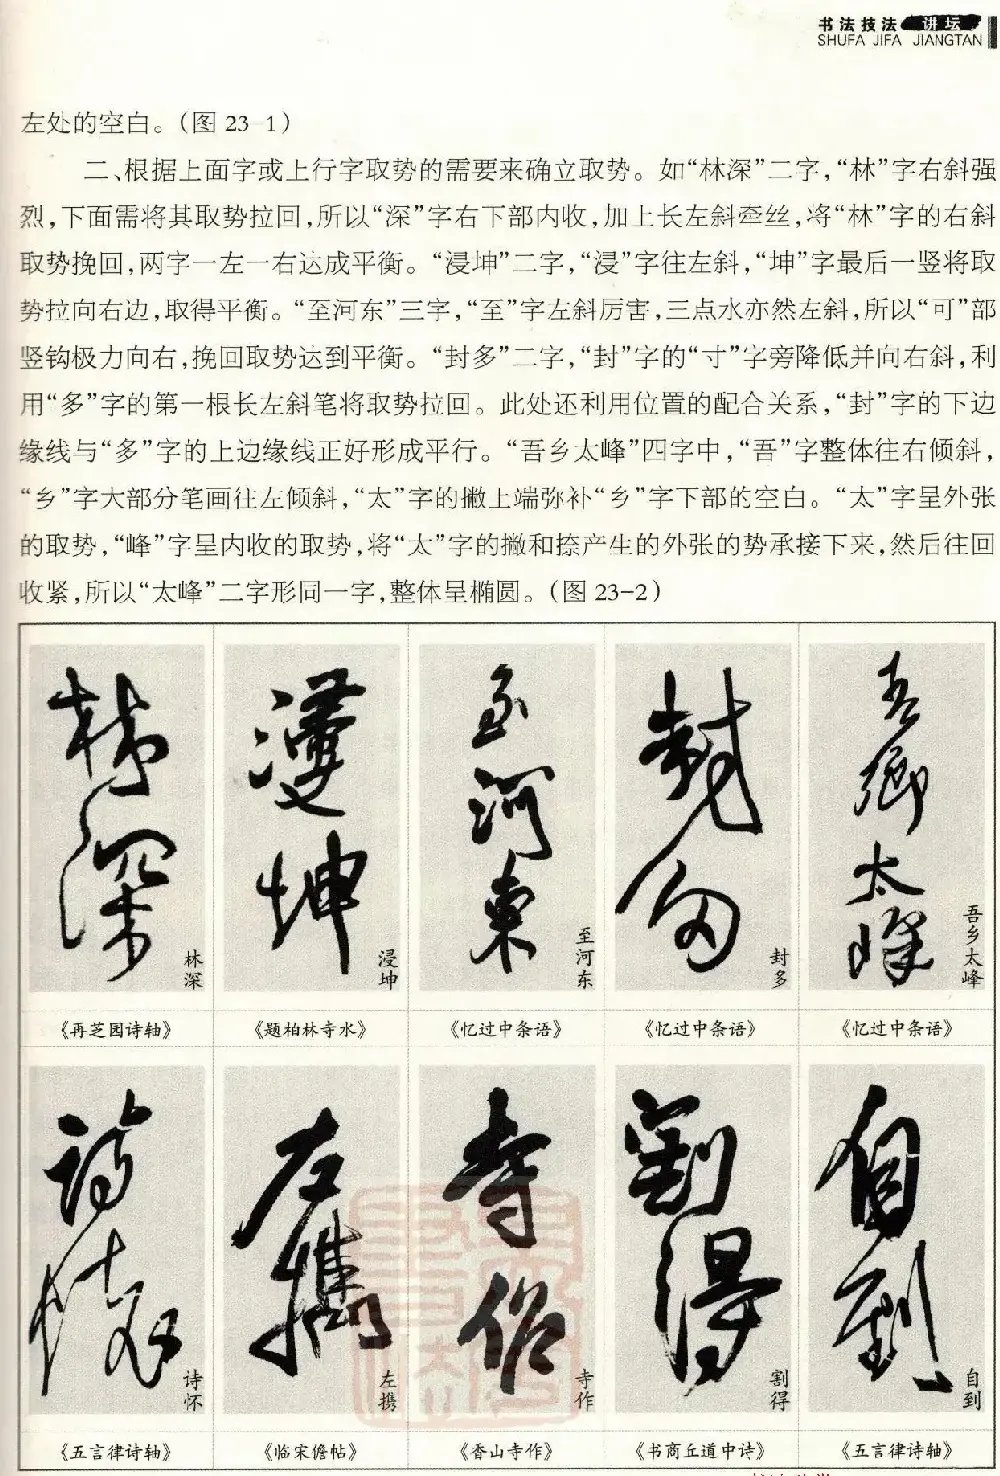 书法技法 讲坛
SHUFA JIFA JIANGTAN
左处的空白。（图 23-1）
二、根据上面字或上行字取势的需要来确立取势。如“林深”二字，“林”字右斜强
烈，下面需将其取势拉回，所以“深”字右下部内收，加上长左斜牵丝，将“林”字的右斜
取势挽回，两字一左一右达成平衡。“浸坤”二字，“浸”字往左斜，“坤”字最后一竖将取
势拉向右边，取得平衡。“至河东”三字，“至”字左斜厉害，三点水亦然左斜，所以“可”部
竖钩极力向右，挽回取势达到平衡。“封多”二字，“封”字的“寸”字旁降低并向右斜，利
用“多”字的第一根长左斜笔将取势拉回。此处还利用位置的配合关系，“封”字的下边
缘线与“多”字的上边缘线正好形成平行。“吾乡太峰”四字中，“吾”字整体往右倾斜，
“乡”字大部分笔画往左倾斜，“太”字的撇上端弥补“乡”字下部的空白。“太”字呈外张
的取势，“峰”字呈内收的取势，将“太”字的撇和捺产生的外张的势承接下来，然后往回
收紧，所以“太峰”二字形同一字，整体呈椭圆。（图 23-2）
林深
浸坤
至河东
封多
吾乡太峰
《再芝园诗轴》
《题柏林寺水》
《忆过中条语》
《忆过中条语》
《忆过中条语》
诗怀
左携
寺作
割得
自到
《五言律诗轴》
《临宋儋帖》
《香山寺作》
《书商丘道中诗》
《五言律诗轴》